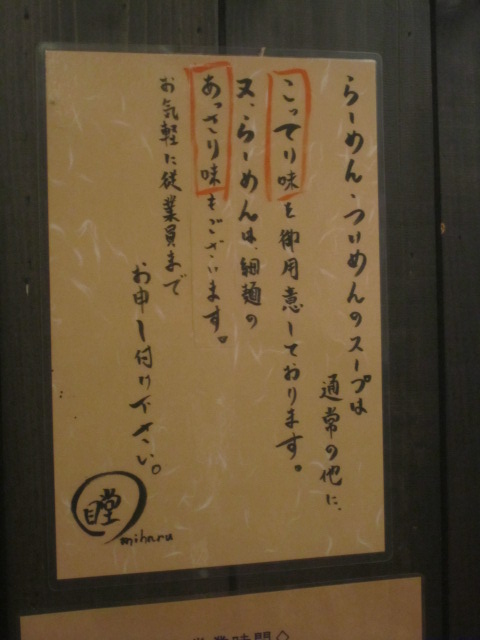 らーめん・つけめんのスープは
通常の他に、
こってり味を御用意しております。
又、らーめんは、細麺の
あっさり味もございます。
お気軽に従業員まで
お申し付け下さい。
瞠
miharu